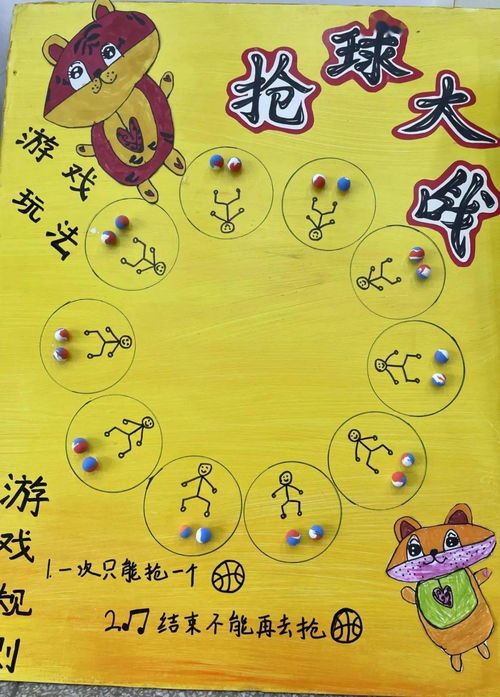 抢球大战
游戏
玩法
游戏规则
1.一次只能抢一个
2.♫结束不能再去抢